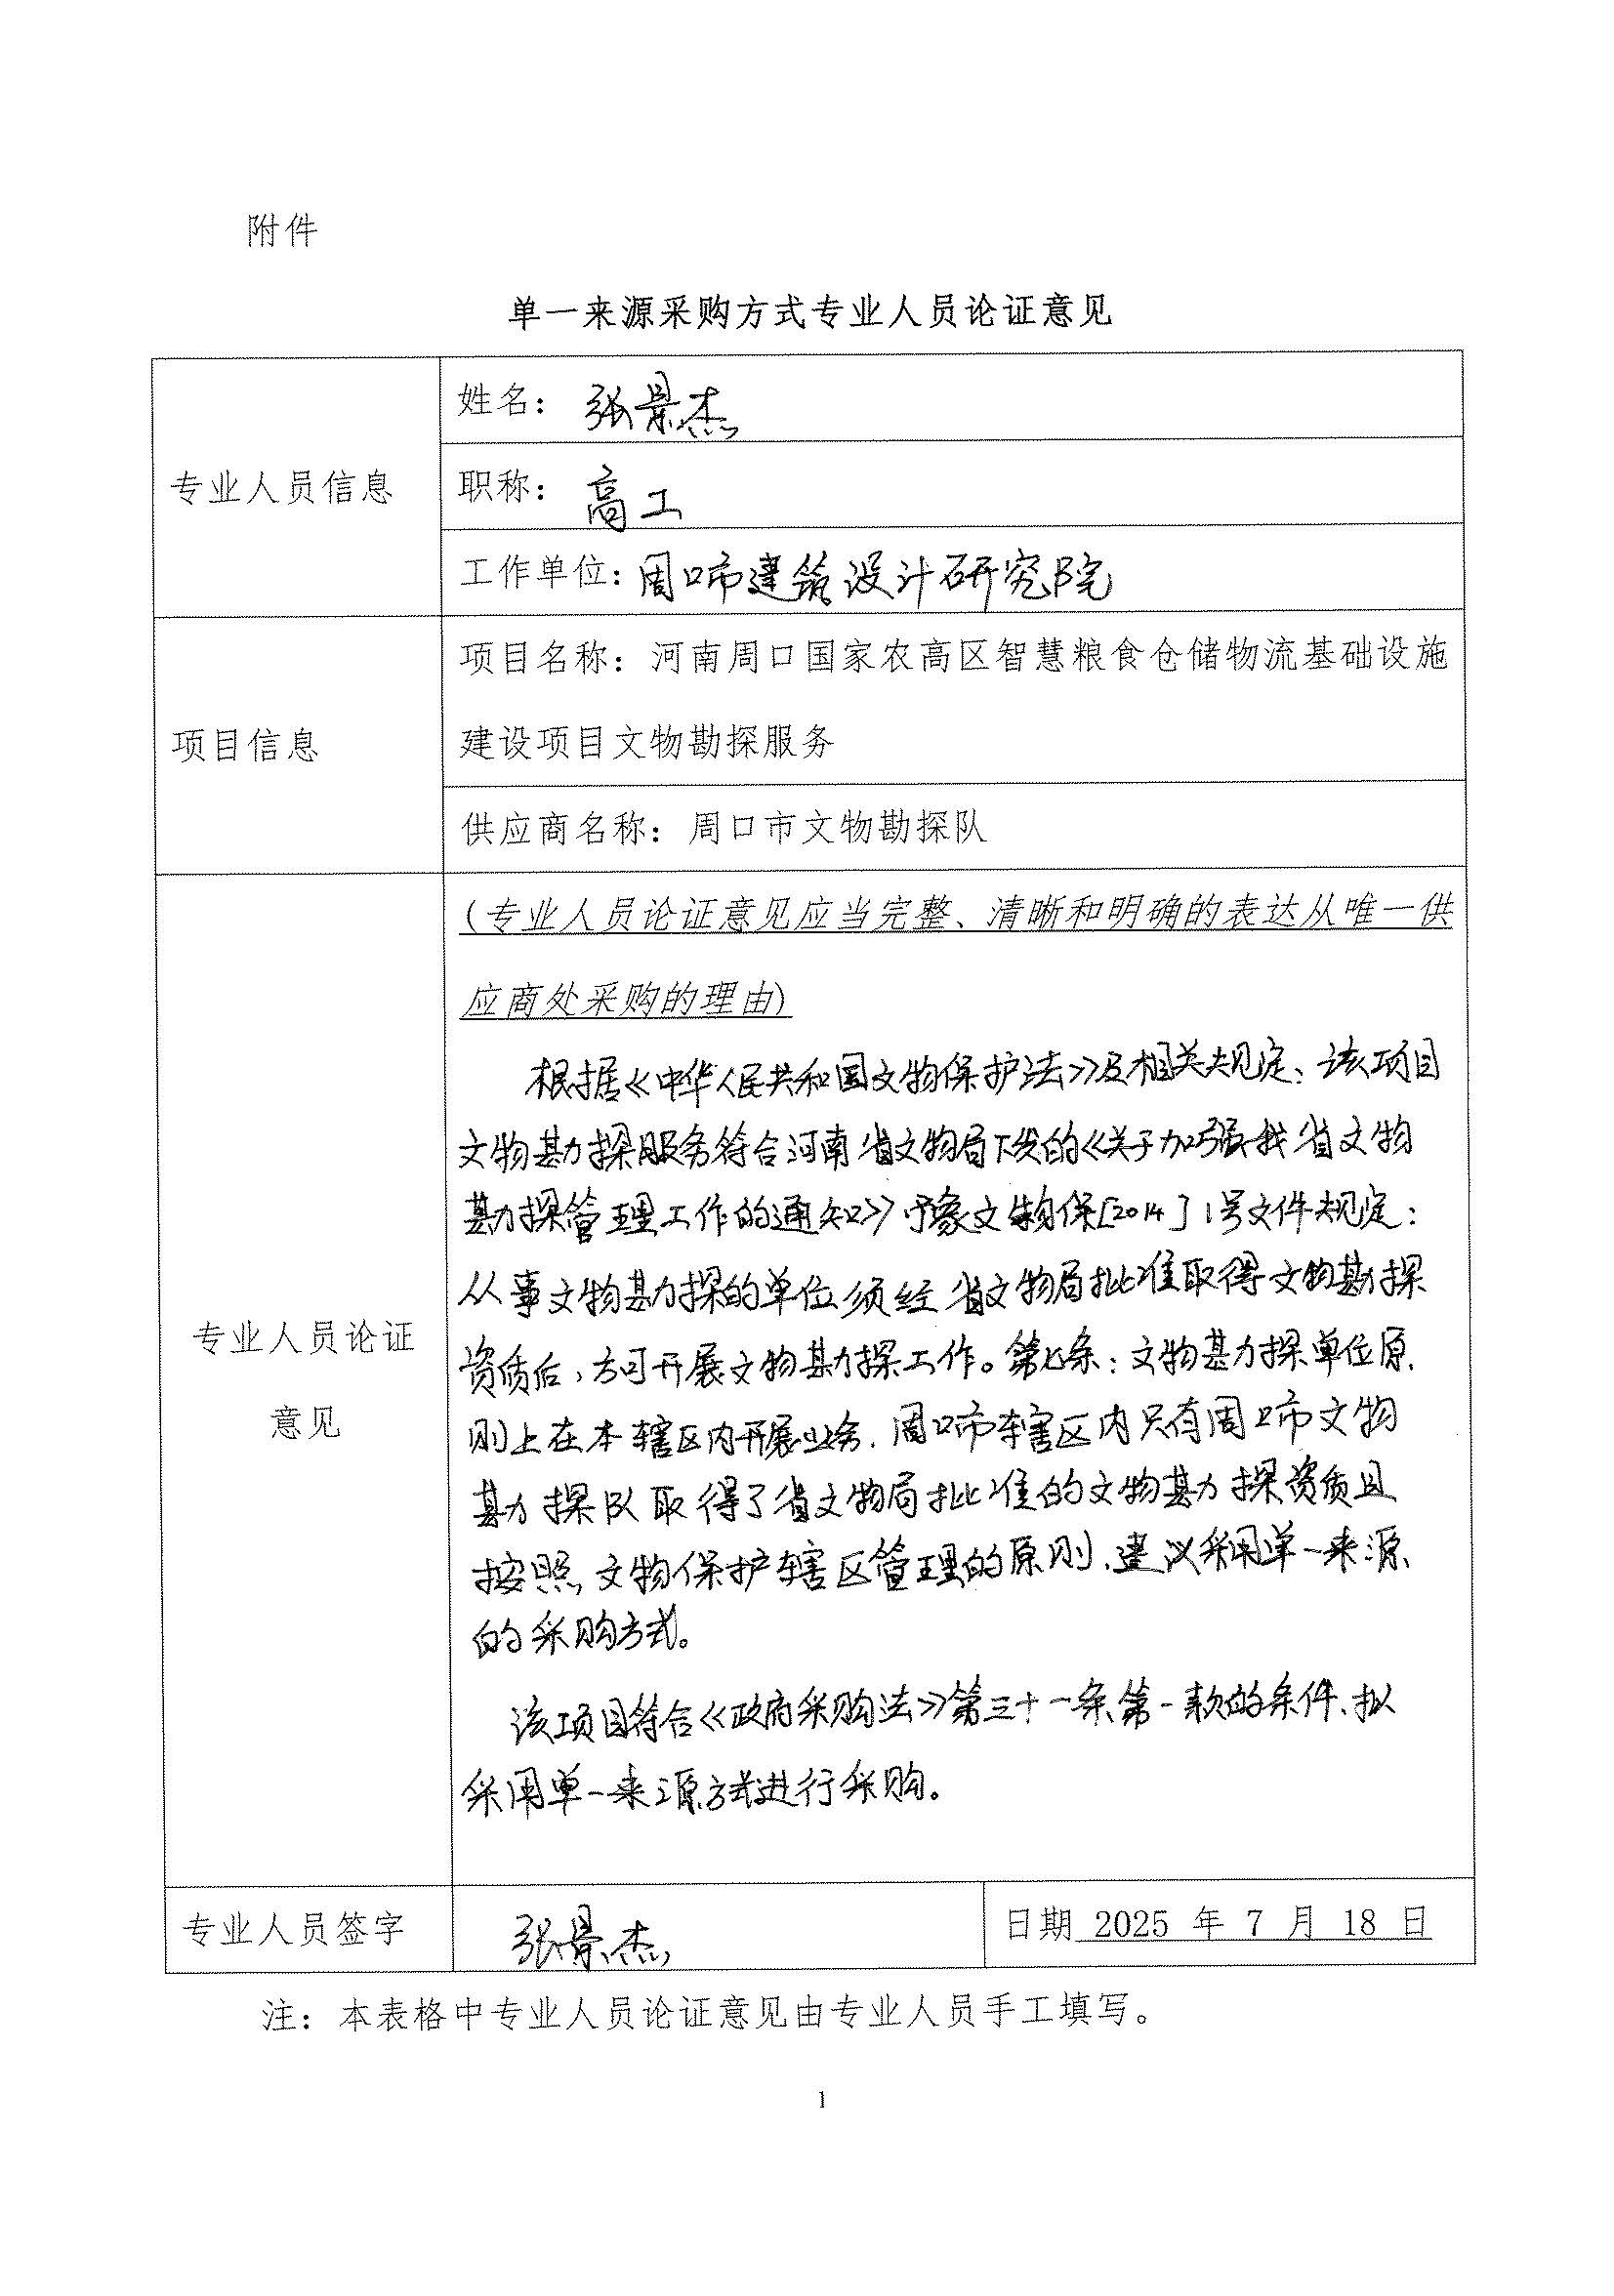 附件
单一来源采购方式专业人员论证意见
专业人员信息
姓名：张景杰
职称：高工
工作单位：周口市建筑设计研究院
项目信息
项目名称：河南周口国家农高区智慧粮食仓储物流基础设施
建设项目文物勘探服务
供应商名称：周口市文物勘探队
专业人员论证
意见
(专业人员论证意见应当完整、清晰和明确的表达从唯一供
应商处采购的理由)
根据《中华人民共和国文物保护法》及相关规定，该项目
文物勘探服务符合河南省文物局下发的《关于加强我省文物
勘探管理工作的通知》豫文物保[2014]1号文件规定：
从事文物勘探的单位须经省文物局批准取得文物勘探
资质后，方可开展文物勘探工作。第七条：文物勘探单位原
则上在本辖区内开展业务，周口市辖区内只有周口市文物
勘探队取得了省文物局批准的文物勘探资质且
按照文物保护辖区管理的原则，建议采用单一来源
的采购方式。
该项目符合《政府采购法》第三十一条第一款的条件，拟
采用单一来源方式进行采购。
专业人员签字
张景杰
日期 2025 年 7 月 18 日
注：本表格中专业人员论证意见由专业人员手工填写。
1